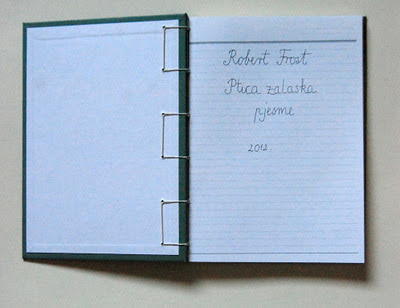 Robert Frost
Ptica zalaska
pjesme
2012.